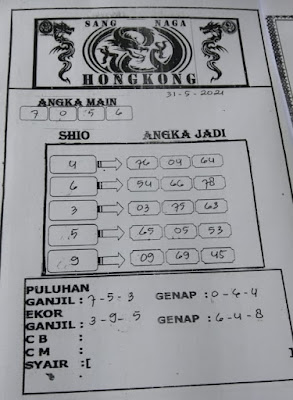 SANG NAGA
HONGKONG
31-5-2021
ANGKA MAIN
7 0 5 6
SHIO ANGKA JADI
4 76 04 64
6 54 66 78
3 03 75 63
5 65 05 53
9 09 69 45
PULUHAN
GANJIL : 7-5-3 GENAP : 0-6-4
EKOR
GANJIL : 3-9-5 GENAP : 6-4-8
C B :
C M :
SYAIR :[